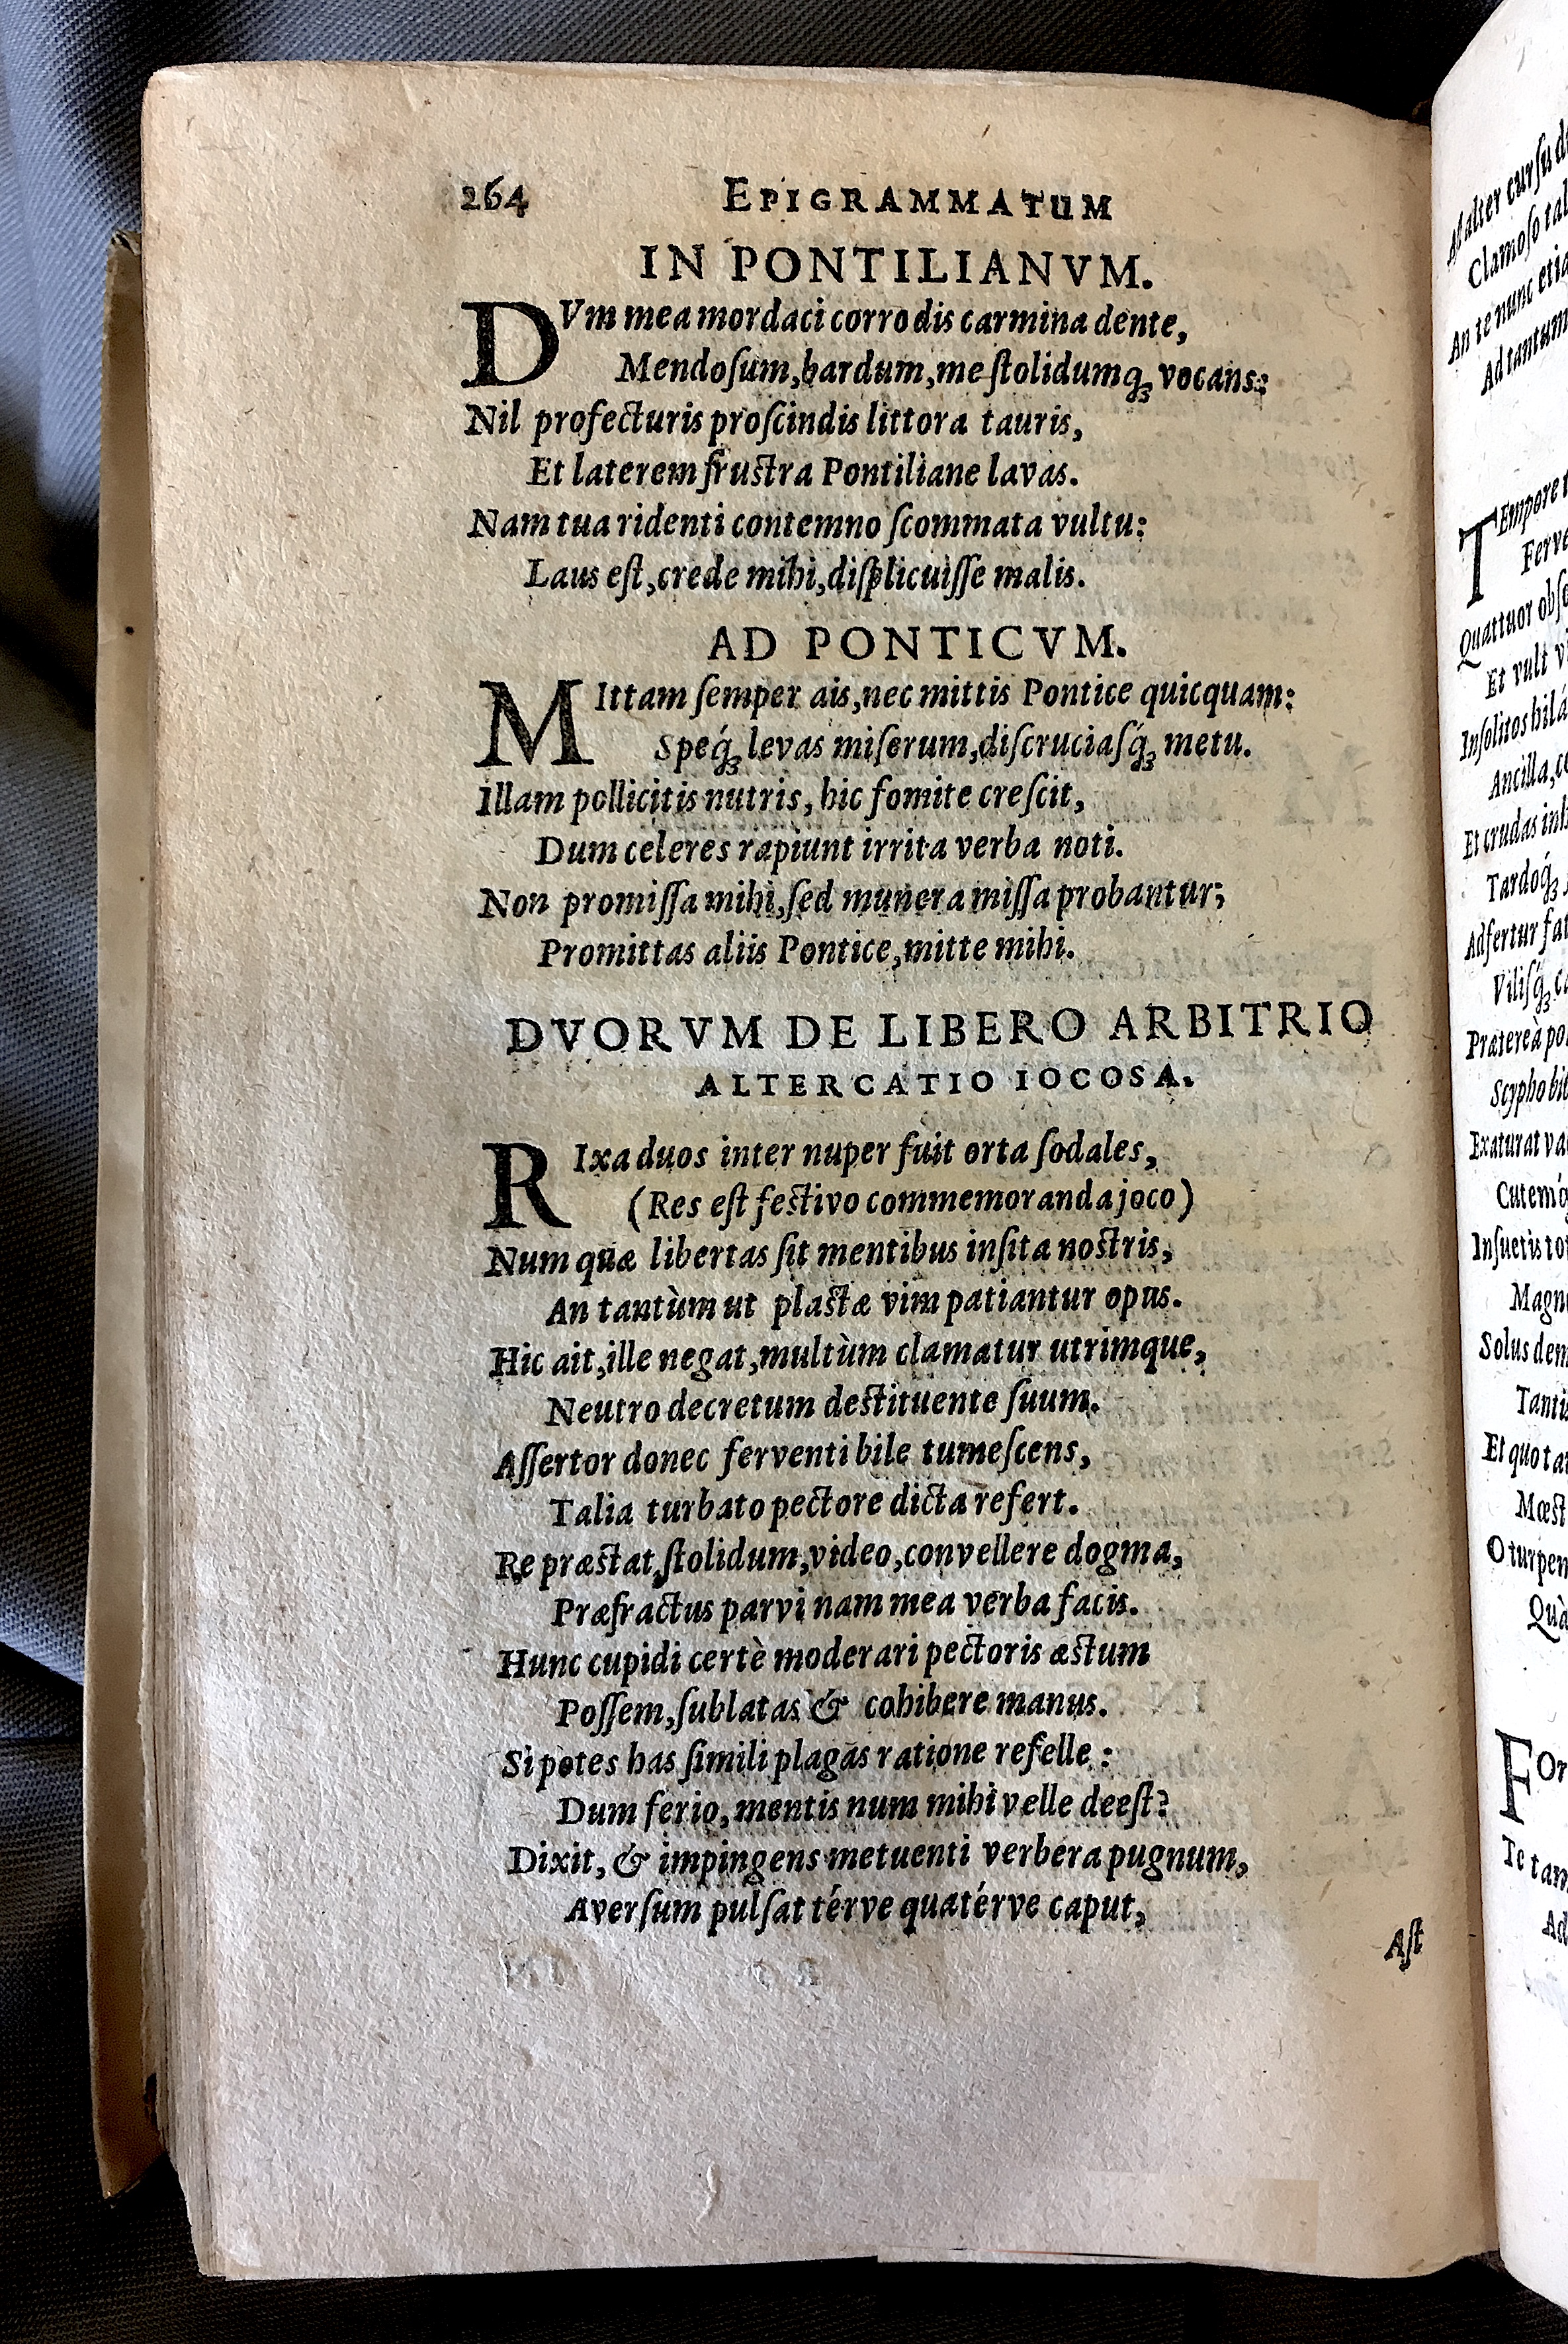 264 EPIGRAMMATUM
IN PONTILIANVM.
DVm mea mordaci corrodis carmina dente,
Mendoſum, bardum, me ſtolidumq́ꝫ vocans:
Nil profecturis proſcindis littora tauris,
Et laterem fruſtra Pontiliane lavas.
Nam tua ridenti contemno ſcommata vultu:
Laus eſt, crede mihi, diſplicuiſſe malis.
AD PONTICVM.
MIttam ſemper ais, nec mittis Pontice quicquam:
Speq́ꝫ levas miſerum, diſcruciaſq́ꝫ metu.
Illam pollicitis nutris, hic fomite creſcit,
Dum celeres rapiunt irrita verba noti.
Non promiſſa mihi, ſed munera miſſa probantur;
Promittas aliis Pontice, mitte mihi.
DVORVM DE LIBERO ARBITRIO
ALTERCATIO IOCOSA.
RIxa duos inter nuper fuit orta ſodales,
(Res eſt feſtivo commemoranda joco)
Num quæ libertas ſit mentibus inſita noſtris,
An tantùm ut plaſtæ vim patiantur opus.
Hic ait, ille negat, multùm clamatur utrimque,
Neutro decretum deſtituente ſuum.
Aſſertor donec ferventi bile tumeſcens,
Talia turbato pectore dicta refert.
Re præſtat, ſtolidum, video, convellere dogma,
Præfractus parvi nam mea verba facis.
Hunc cupidi certè moderari pectoris æſtum
Poſſem, ſublatas & cohibere manus.
Si potes has ſimili plagas ratione refelle:
Dum ferio, mentis num mihi velle deeſt?
Dixit, & impingens metuenti verbera pugnum,
Averſum pulſat térve quatérve caput,
Aſt